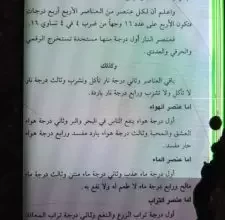 واعلم أن لكل عنصر من العناصر الأربع أربع درجات
فتكون الأربع على عدد ١٦ وجهاً من ضرب ٤ في ٤ تساوي ١٦.
فعنصر النار أول درجة منها مستخدة تستخرج الرقمي
والحرفي والعددي.
وكذلك
باقي العناصر وثاني درجة نار تأكل وتشرب وثالث درجة نار
لا تأكل ولا تشرب ورابع درجة نار
أما عنصر الهواء
أول درجة هواء ينفع الثاني في البخر والبر وثاني درجة هواء
العشق والمحبة وثالث درجة هواء بارد مفسد ورابع درجة هواء
حار مفسد.
أما عنصر الماء
أول درجة ماء عذب وثاني درجة ماء منتن وثالث درجة ماء
مالح ورابع درجة ماء لا طعم له ولا نفع به.
أما عنصر التراب
أول درجة تراب الزرع والنفع وثاني درجة تراب المعادن